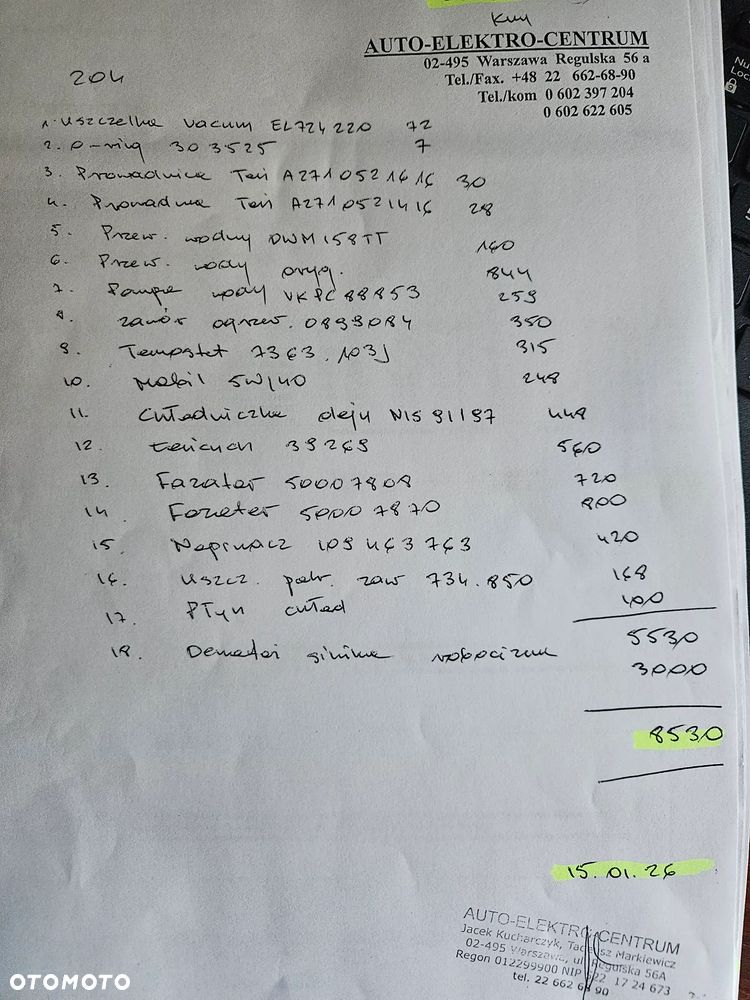 AUTO-ELEKTRO-CENTRUM
02-495 Warszawa Regulska 56 a
Tel./Fax. +48 22 662-68-90
Tel./kom 0 602 397 204
0 602 622 605
204
1. Uszczelka vacum EL724220 72
2. o-ring 303525 7
3. Prowadnica Łań A271 052 16 16 30
4. Prowadnica Łań A271 052 14 16 28
5. Przew. wodny DWM158TT 160
6. Przew. wody oryg. 844
7. Pompa wody VKPC 88853 259
8. zawór ogrzew. 0899084 350
9. Termostat 7363.103J 315
10. Mobil 5W/40 248
11. Chłodniczka oleju NIS 91197 448
12. Łańcuch 39269 560
13. Fazator 50007808 720
14. Fazator 50007870 800
15. Napinacz 109463763 420
16. Uszcz. pokr. zaw 734.850 168
17. Płyn chłod 100
5530
18. Demontaż silnika robocizna 3000
8530
15.01.26
AUTO-ELEKTRO-CENTRUM
Jacek Kucharczyk, Tadeusz Markiewicz
02-495 Warszawa, ul. Regulska 56A
Regon 012299900 NIP 522 17 24 673
tel. 22 662 68 90
OTOMOTO